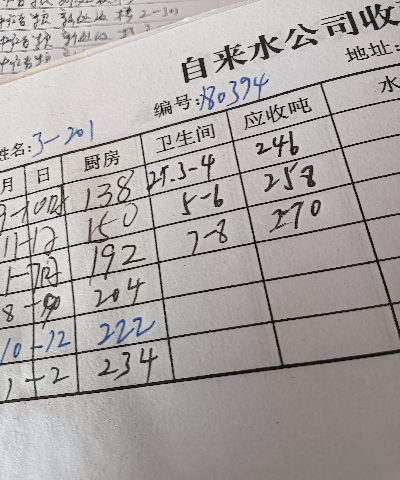 自来水公司收
编号: 180394
地址:
姓名: 3-201
月 日 厨房 卫生间 应收吨 水
9-10月 138 25.3-4 246
11-12 150 5-6 258
1-7月 192 7-8 270
8- 204
10-12 222
1-2 234